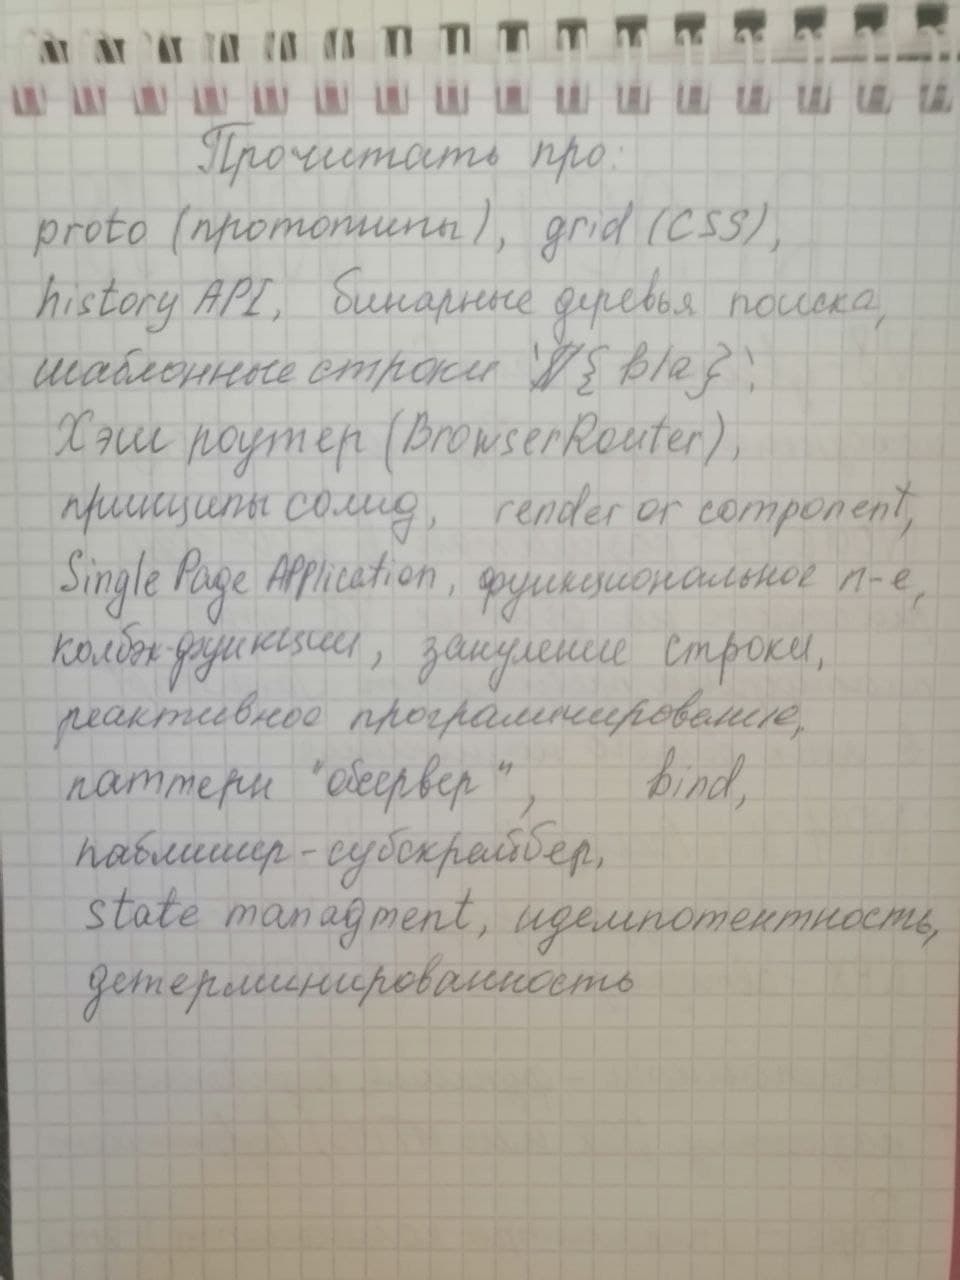 Прочитать про:
proto (прототипы), grid (CSS),
history API, бинарные деревья поиска,
шаблонные строки `${bla}`,
Хэш роутер (BrowserRouter),
принципы солид, render or component,
Single Page Application, функциональное п-е,
колбэк-функции, зануление строки,
реактивное программирование,
паттерн "обсервер", bind,
паблишер-субскрайбер,
state managment, идемпотентность,
детерминированность